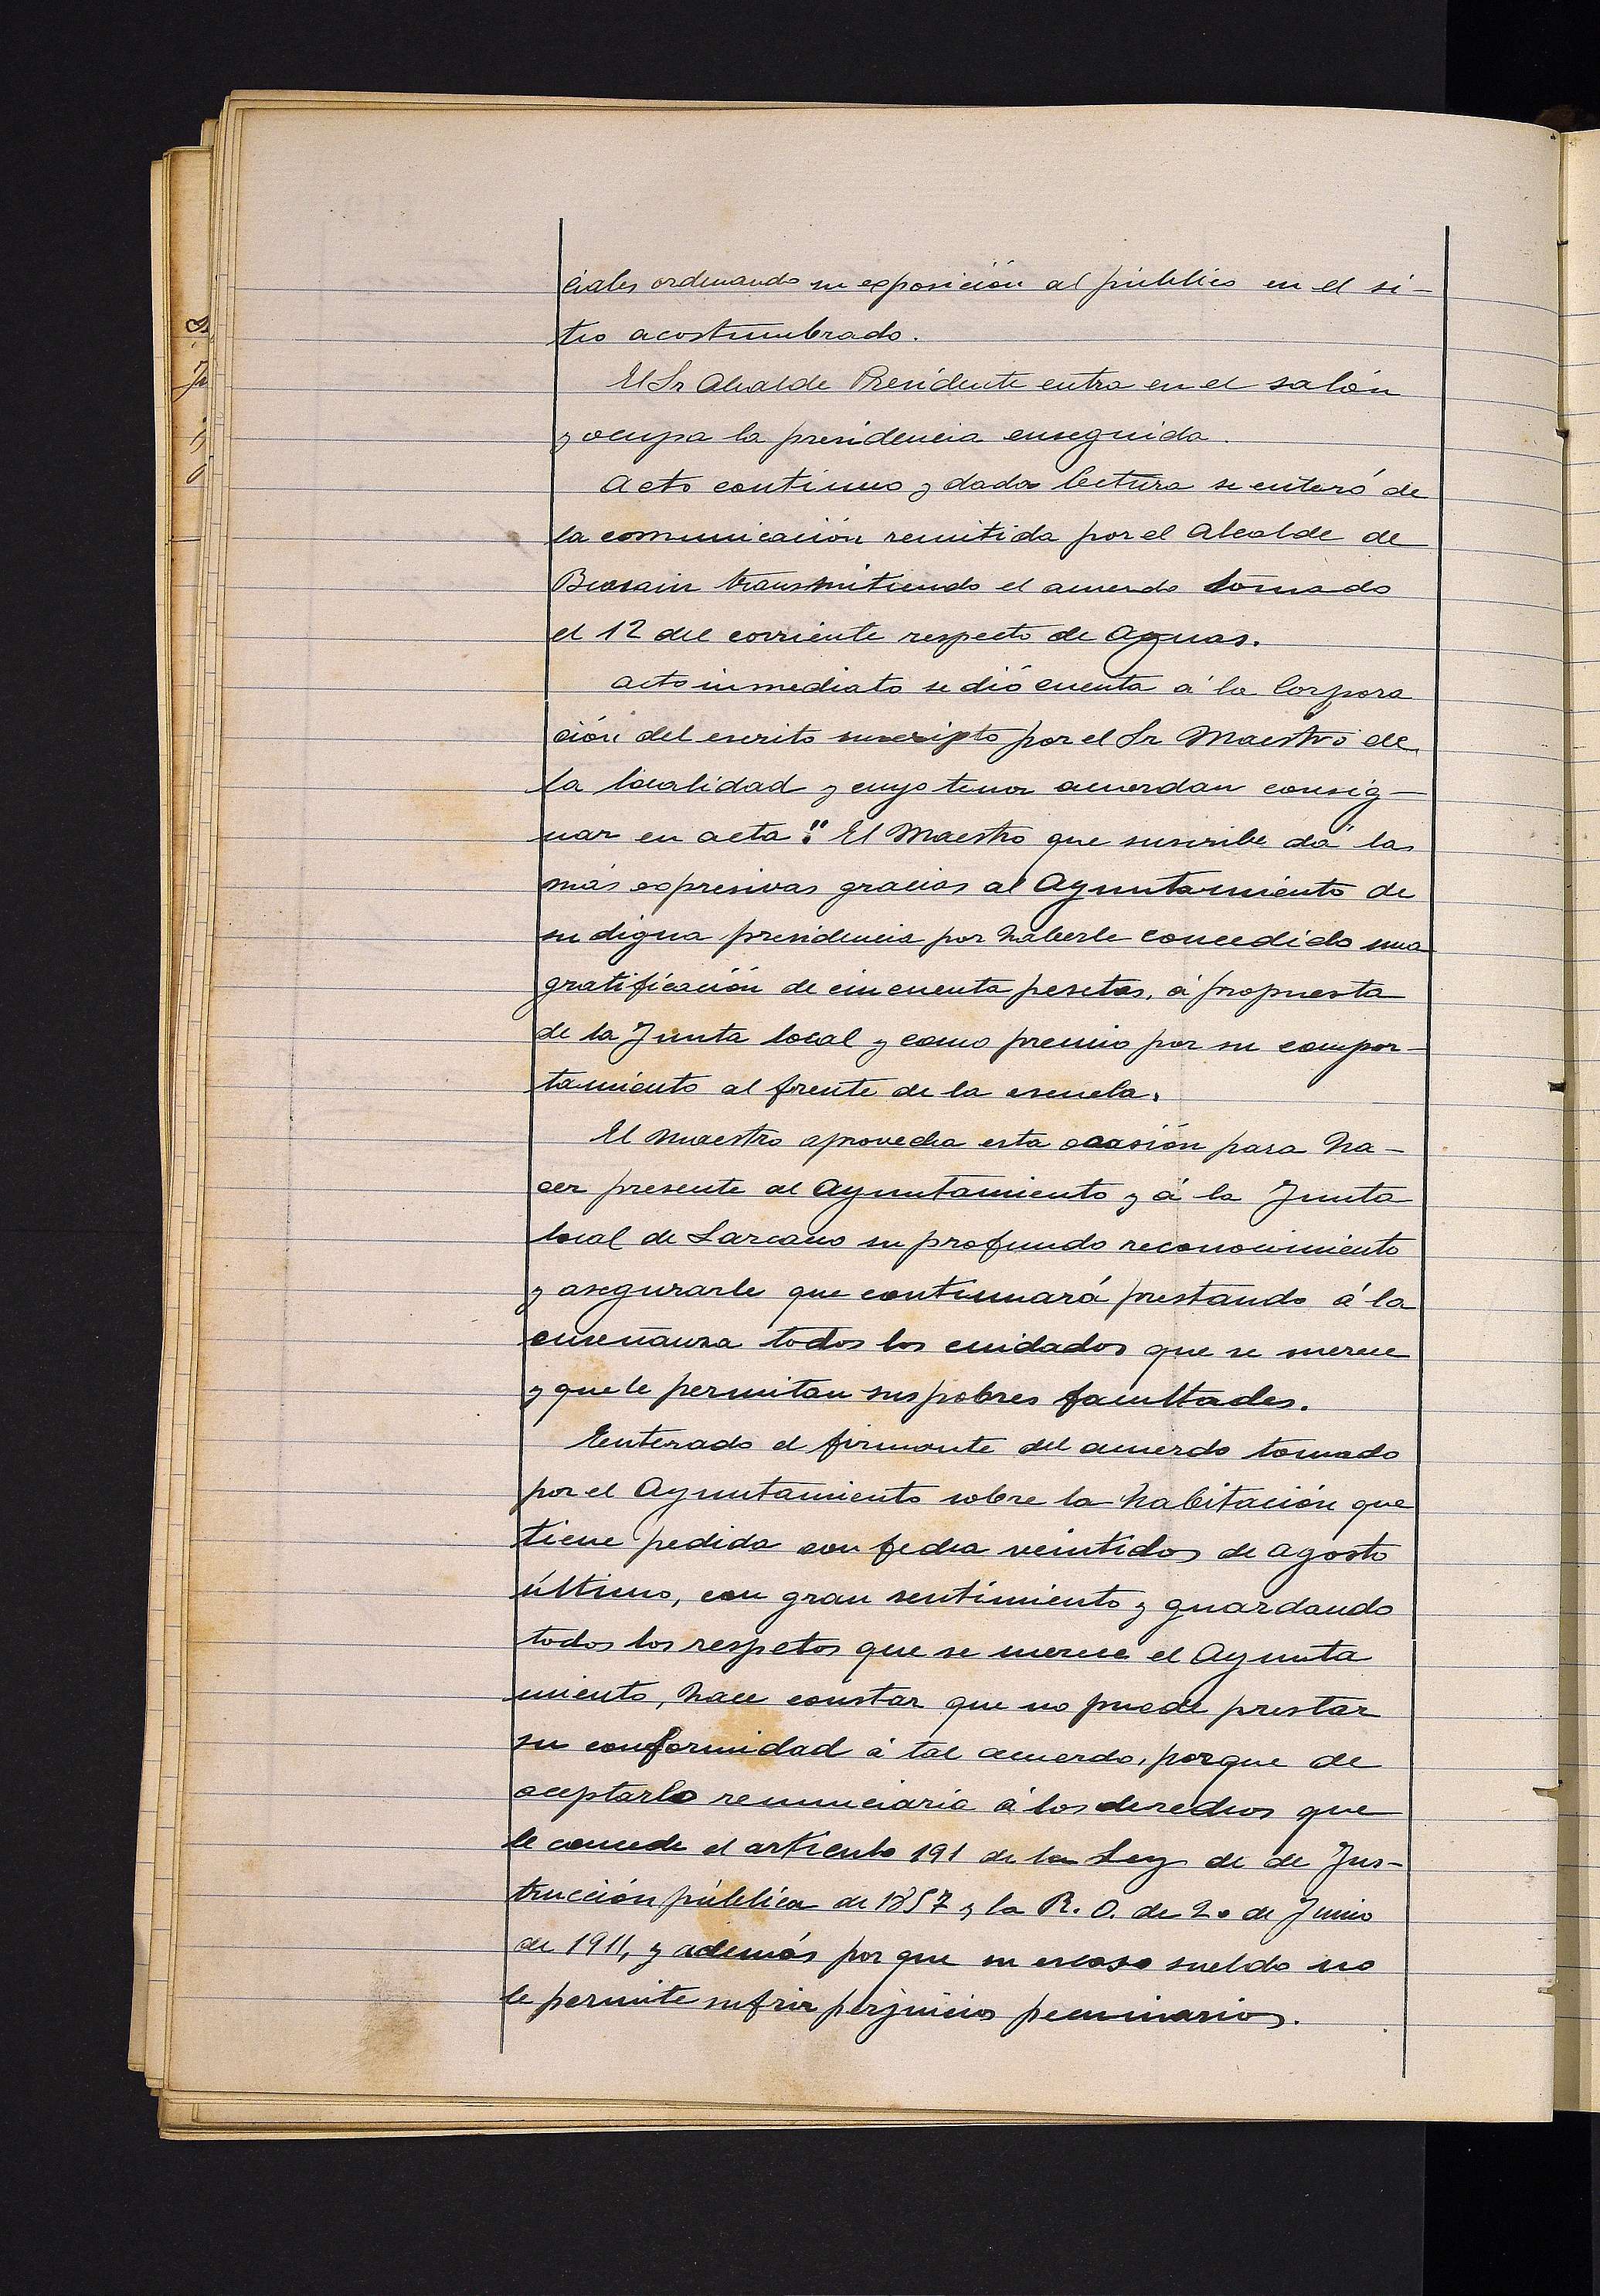 ciales ordenando su exposición al público en el si-
tio acostumbrado.
El Sr Alcalde Presidente entra en el salón
y ocupa la presidencia enseguida.
Acto continuo y dada lectura se enteró de
la comunicación remitida por el Alcalde de
Beasain transmitiendo el acuerdo tomado
el 12 del corriente respecto de Aguas.
Acto inmediato se dió cuenta á la Corpora
ción del escrito suscripto por el Sr Maestro de
la localidad y cuyo tenor acuerdan consig-
nar en acta: "El Maestro que suscribe dá las
más expresivas gracias al Ayuntamiento de
su digna presidencia por haberle concedido una
gratificación de cincuenta pesetas, á propuesta
de la Junta local y como premio por su compor-
tamiento al frente de la escuela.
El Maestro aprovecha esta ocasión para ha-
cer presente al Ayuntamiento y á la Junta
local de Lazcano su profundo reconocimiento
y asegurarle que continuará prestando á la
enseñanza todos los cuidados que se merece
y que le permitan sus pobres facultades.
Enterado el firmante del acuerdo tomado
por el Ayuntamiento sobre la habitación que
tiene pedida con fecha veintidos de agosto
último, con gran sentimiento y guardando
todos los respetos que se merece el Ayunta
miento, hace constar que no puede prestar
su conformidad á tal acuerdo, porque de
aceptarlo renunciaria á los derechos que
le concede el articulo 191 de la Ley de de Ins-
trucción pública de 1857 y la R. O. de 20 de Junio
de 1911, y además por que su escaso sueldo no
le permite sufrir perjuicios pecuniarios.